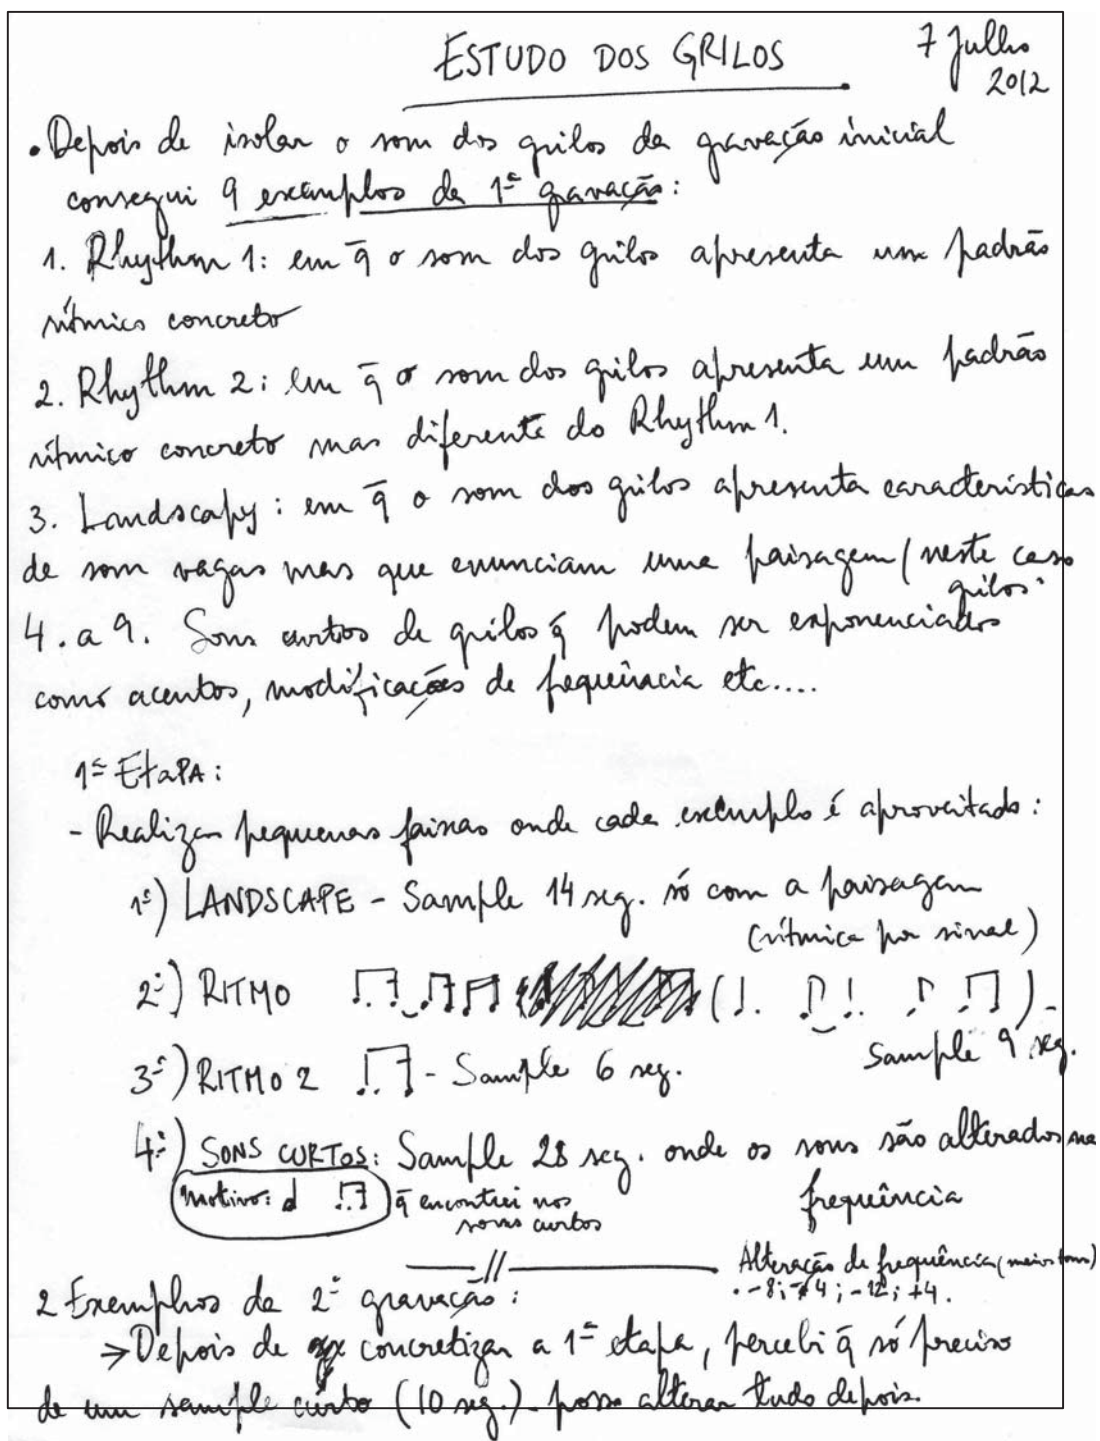 ESTUDO DOS GRILOS
7 Julho
2012
• Depois de isolar o som dos grilos da gravação inicial
consegui 9 exemplos da 1ª gravação:
1. Rhythm 1: em q̄ o som dos grilos apresenta um padrão
rítmico concreto
2. Rhythm 2: em q̄ o som dos grilos apresenta um padrão
rítmico concreto mas diferente do Rhythm 1.
3. Landscapy: em q̄ o som dos grilos apresenta características
de som vagas mas que enunciam uma paisagem (neste caso
grilos.
4. a 9. Sons curtos de grilos q̄ podem ser exponenciados
como acentos, modificações de frequência etc....
1ª EtaPA:
- Realizar pequenas faixas onde cada exemplo é aproveitado:
1º) LANDSCAPE - Sample 14 seg. só com a paisagem
(rítmica por sinal)
2º) RITMO ( ) -
Sample 9 seg.
3º) RITMO 2 - Sample 6 seg.
4º) SONS CURTOS: Sample 28 seg. onde os sons são alterados na
frequência
motivo: q̄ encontrei nos
sons curtos
Alteração de frequência (meios tons)
. -8; +4; -12; +4.
2 Exemplos da 2ª gravação:
→ Depois de concretizar a 1ª etapa, percebi q̄ só preciso
de um sample curto (10 seg.) - posso alterar tudo depois.